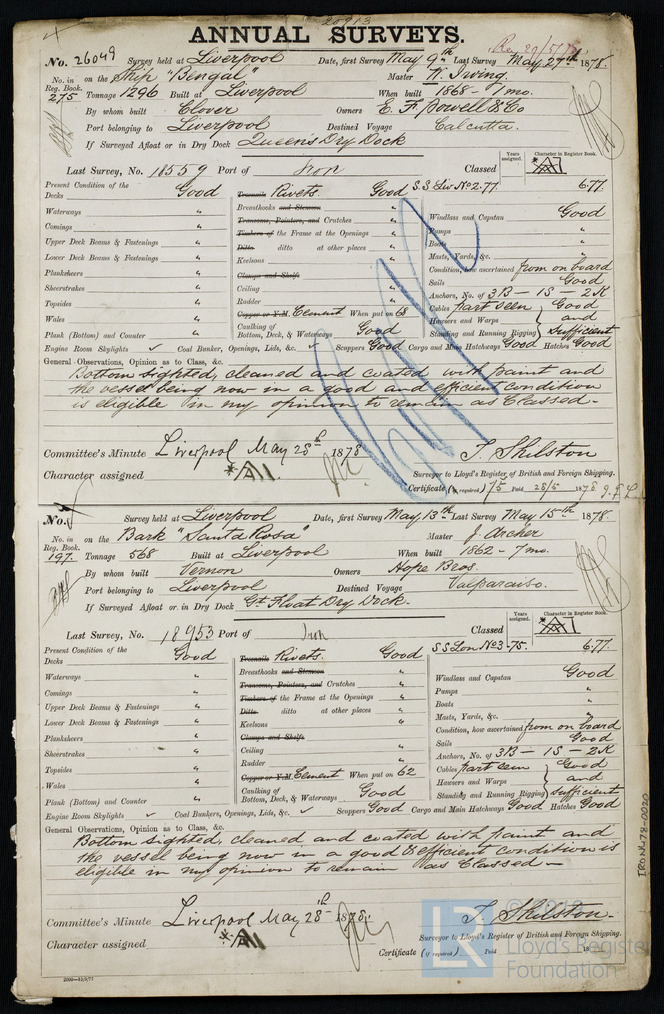 20913
ANNUAL SURVEYS.
No. 26049 Survey held at Liverpool Date, first Survey May 9th Last Survey May 27th 1878.
No. in Reg. Book. 275 on the Ship "Bengal" Master W. Irving.
Tonnage 1296 Built at Liverpool When built 1868 - 1 mo.
By whom built Clover Owners E. F. Powell & Co
Port belonging to Liverpool Destined Voyage Calcutta.
If Surveyed Afloat or in Dry Dock Queen's Dry Dock
Years assigned. Character in Register Book.
Last Survey, No. 18559 Port of Iron Classed A1
Present Condition of the Decks Good Treenails Rivets. Good S.S Liv No 2. 77 6.77
Waterways " Breasthooks and Stemson " Windlass and Capstan Good
Comings " Transoms, Pointers, and Crutches " Pumps "
Upper Deck Beams & Fastenings " Timbers of the Frame at the Openings " Boats "
Lower Deck Beams & Fastenings " Ditto ditto at other places " Masts, Yards, &c. "
Planksheers " Keelsons " Condition, how ascertained from on board
Sheerstrakes " Clamps and Shelfs Sails Good
Topsides " Ceiling " Anchors, No. of 3B - 1S - 2K
Wales " Rudder " Cables part seen Good
Plank (Bottom) and Counter " Copper or Y.M. Cement When put on 68 Hawsers and Warps and
Caulking of Bottom, Deck, & Waterways Good Standing and Running Rigging Sufficient
Engine Room Skylights ✓ Coal Bunker, Openings, Lids, &c. ✓ Scuppers Good Cargo and Main Hatchways Good Hatches Good
General Observations, Opinion as to Class, &c.
Bottom sighted, cleaned and coated with paint and
the vessel being now in a good and efficient condition
is eligible in my opinion to remain as Classed -
Committee's Minute Liverpool May 28th 1878 T. Shilston
Character assigned A1. Surveyor to Lloyd's Register of British and Foreign Shipping.
Certificate (if required) 7/5 Paid 28/5 1878
No. Survey held at Liverpool Date, first Survey May 13th Last Survey May 15th 1878.
No. in Reg. Book. 197. on the Bark "Santa Rosa" Master J. Archer
Tonnage 568 Built at Liverpool When built 1862 - 7 mo.
By whom built Vernon Owners Hope Bros.
Port belonging to Liverpool Destined Voyage Valparaiso.
If Surveyed Afloat or in Dry Dock Gt Float Dry Dock.
Years assigned. Character in Register Book.
Last Survey, No. 18953 Port of Iron Classed A1
Present Condition of the Decks Good Treenails Rivets. Good S S Lon No 3 - 75. 6.77
Waterways " Breasthooks and Stemson " Windlass and Capstan Good
Comings " Transoms, Pointers, and Crutches " Pumps "
Upper Deck Beams & Fastenings " Timbers of the Frame at the Openings " Boats "
Lower Deck Beams & Fastenings " Ditto ditto at other places " Masts, Yards, &c. "
Planksheers " Keelsons " Condition, how ascertained from on board
Sheerstrakes " Clamps and Shelfs Sails Good
Topsides " Ceiling " Anchors, No. of 3B - 1S - 2K
Wales " Rudder " Cables part seen Good
Plank (Bottom) and Counter " Copper or Y.M. Cement When put on 62 Hawsers and Warps and
Caulking of Bottom, Deck, & Waterways Good Standing and Running Rigging sufficient
Engine Room Skylights ✓ Coal Bunkers, Openings, Lids, &c. ✓ Scuppers Good Cargo and Main Hatchways Good Hatches Good
General Observations, Opinion as to Class, &c.
Bottom sighted, cleaned and coated with paint and
the vessel being now in a good & efficient condition is
eligible in my opinion to remain as Classed -
Committee's Minute Liverpool May 28th 1878. T. Shilston.
Character assigned A1 Surveyor to Lloyd's Register of British and Foreign Shipping.
Certificate (if required) Paid 18
IRON-78-0020
Lloyd's Register
Foundation